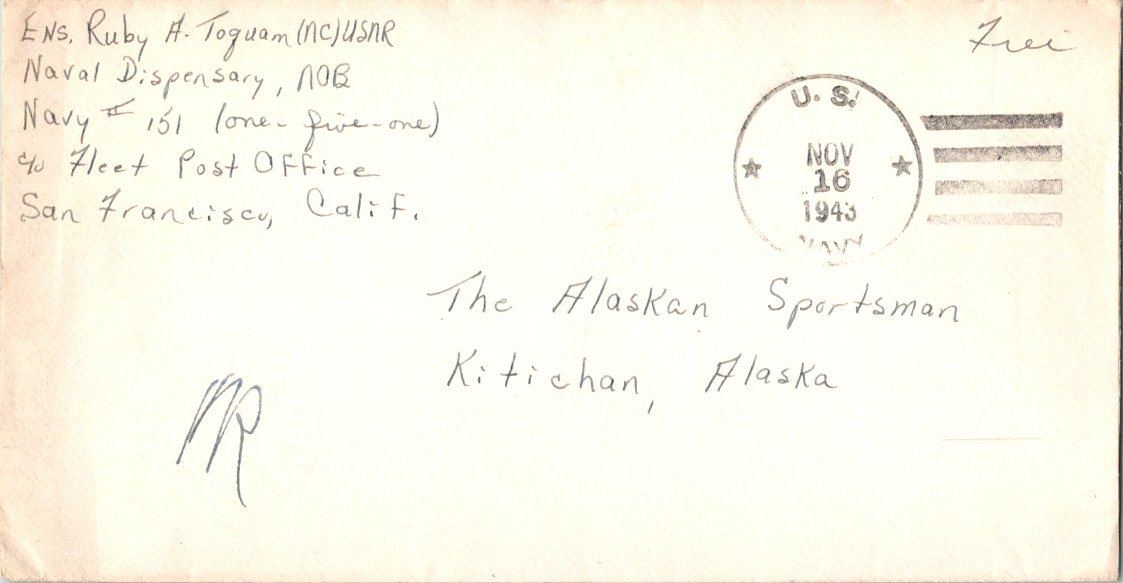 Ens. Ruby A. Toguam (NC) USNR
Naval Dispensary, NOB
Navy # 151 (one-five-one)
c/o Fleet Post Office
San Francisco, Calif.
Free
U. S.
NOV
16
1943
NAVY
The Alaskan Sportsman
Kitichan, Alaska